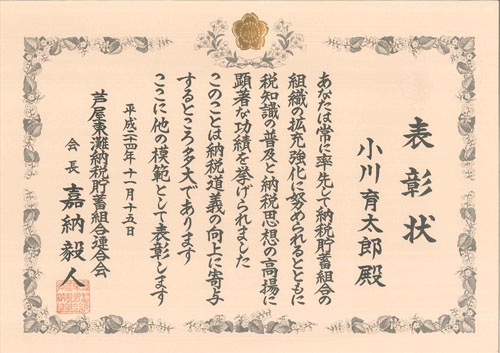 表彰状
小川育太郎殿
あなたは常に率先して納税貯蓄組合の
組織の拡充強化に努められるとともに
税知識の普及と納税思想の高揚に
顕著な功績を挙げられました
このことは納税道義の向上に寄与
するところ多大であります
ここに他の模範として表彰します
平成二四年十一月十五日
芦屋東灘納税貯蓄組合連合会
会長 嘉納毅人